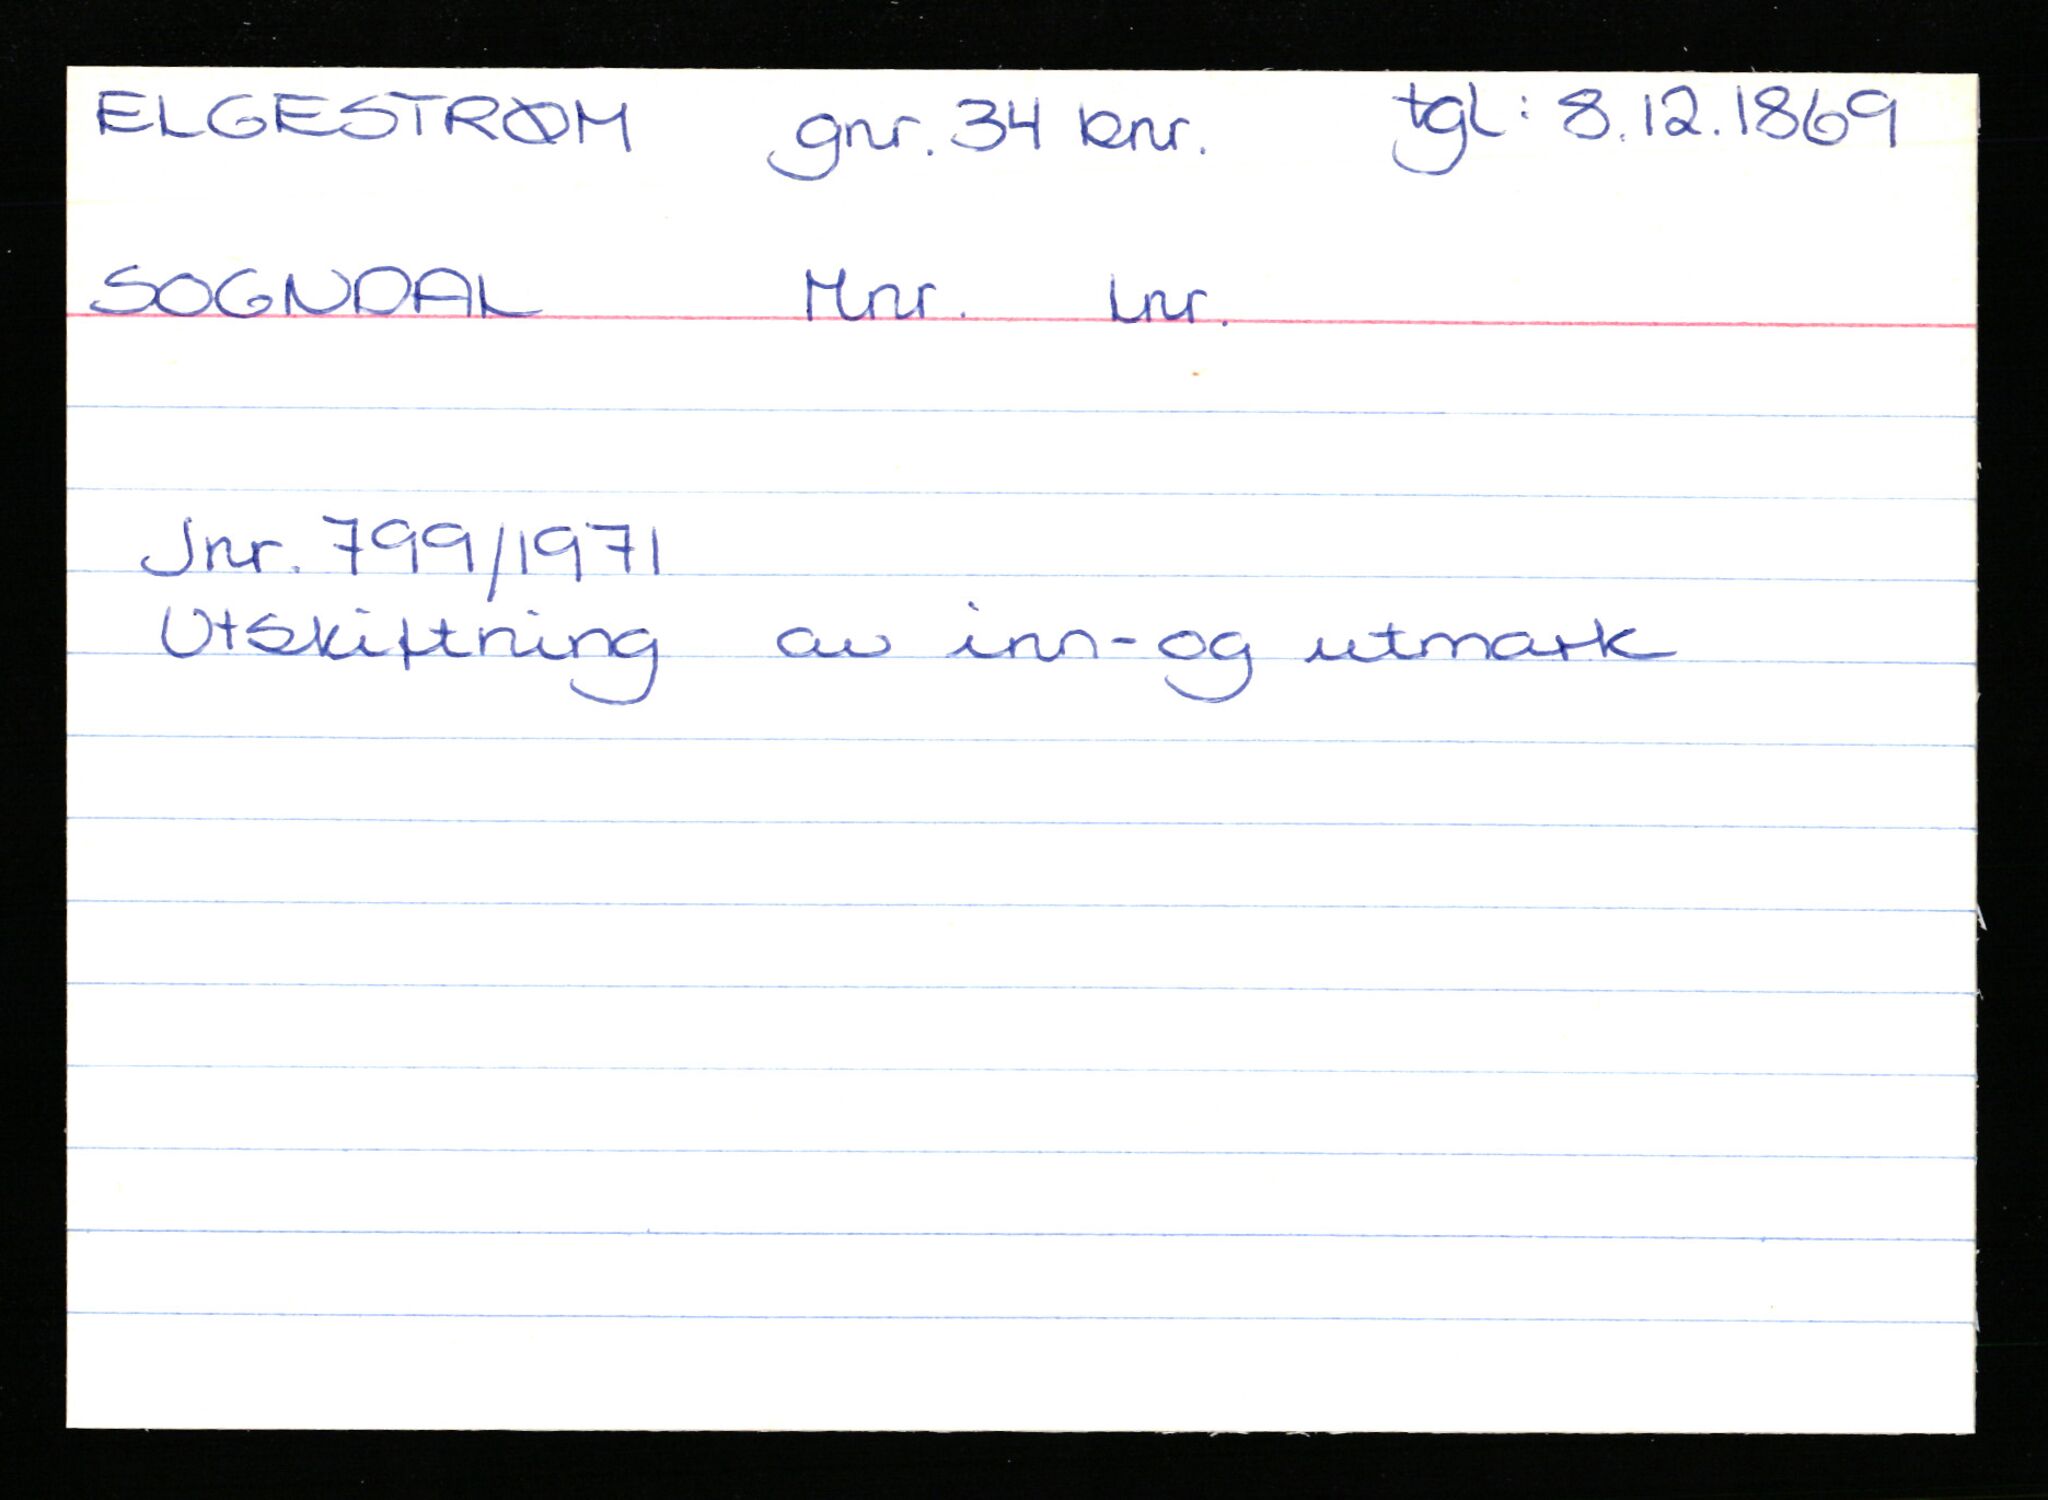 ELGESTRØM gnr. 34 bnr. tgl: 8.12.1869
SOGNDAL Mnr. Lnr.
Jnr. 799/1971
Utskiftning av inn- og utmark